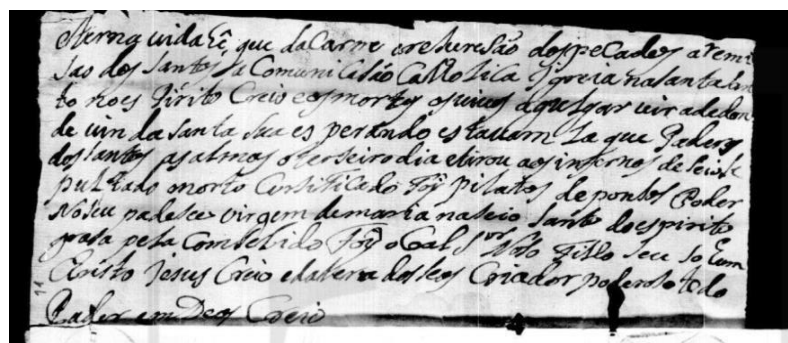 Aerna uida hê, que da Carne oreSureSão dos peCados, a Remi
Sao dos Santos, Sa Comunicasão CaMolica Jgreia, na Santa San
to noes Pirito Creio e os mortos os uiuos a qulgar uir adedon
de uin da Santa Sua es perando es tauam La que Paders
dos Santos as almas o terseiro dia e tirou aos infernos de Seio Se
pultado morto Cursificado Foy Pilatos de pondos Poder
No Seu padeseu virgem de maria naseio Santo do espirito
grasa pela ComSebido Foy o Cal Snor Noso Fillo Seu So Eum
Christo Jesus Creio e da tera do Seos Criador poderoso todo
Pader em Deos Creio